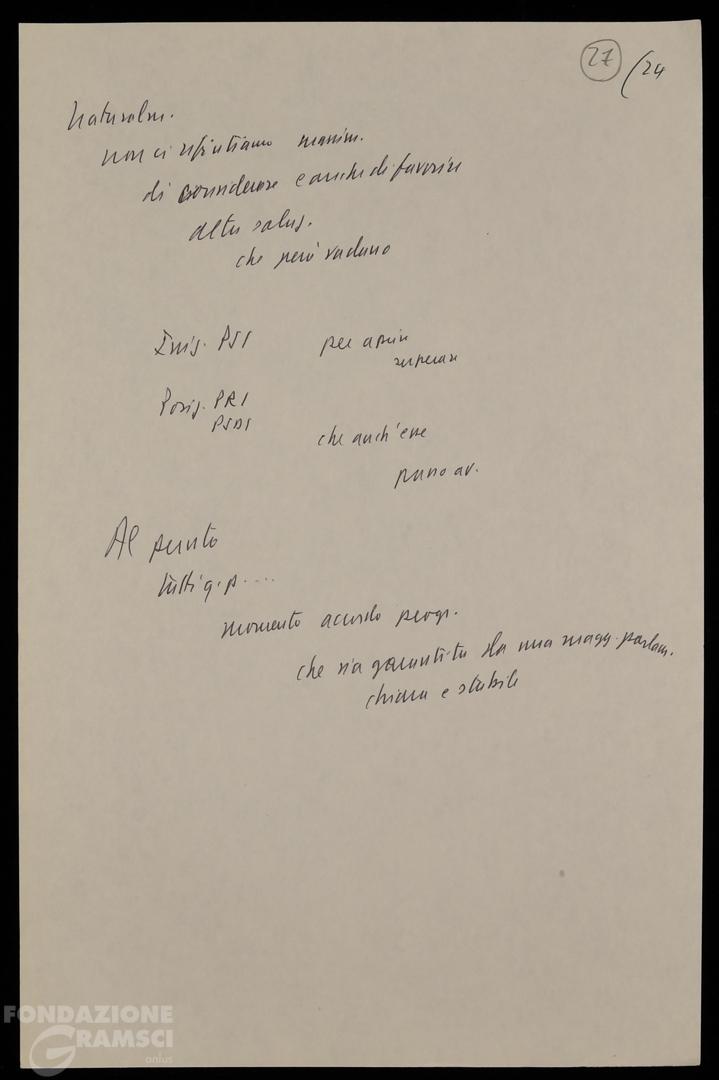 27 (24
Naturalm.
non ci rifiutiamo
di considerare e anche di favorire
altre soluz.
che però vadano
Iniz. PSI per aprire
superare
Posiz. PRI
PSDI
che anch'esse
av.
Al punto
tutti q. p. ....
momento accordo progr.
che sia garantito da una magg. parlam.
chiara e stabile
FONDAZIONE
GRAMSCI
onlus